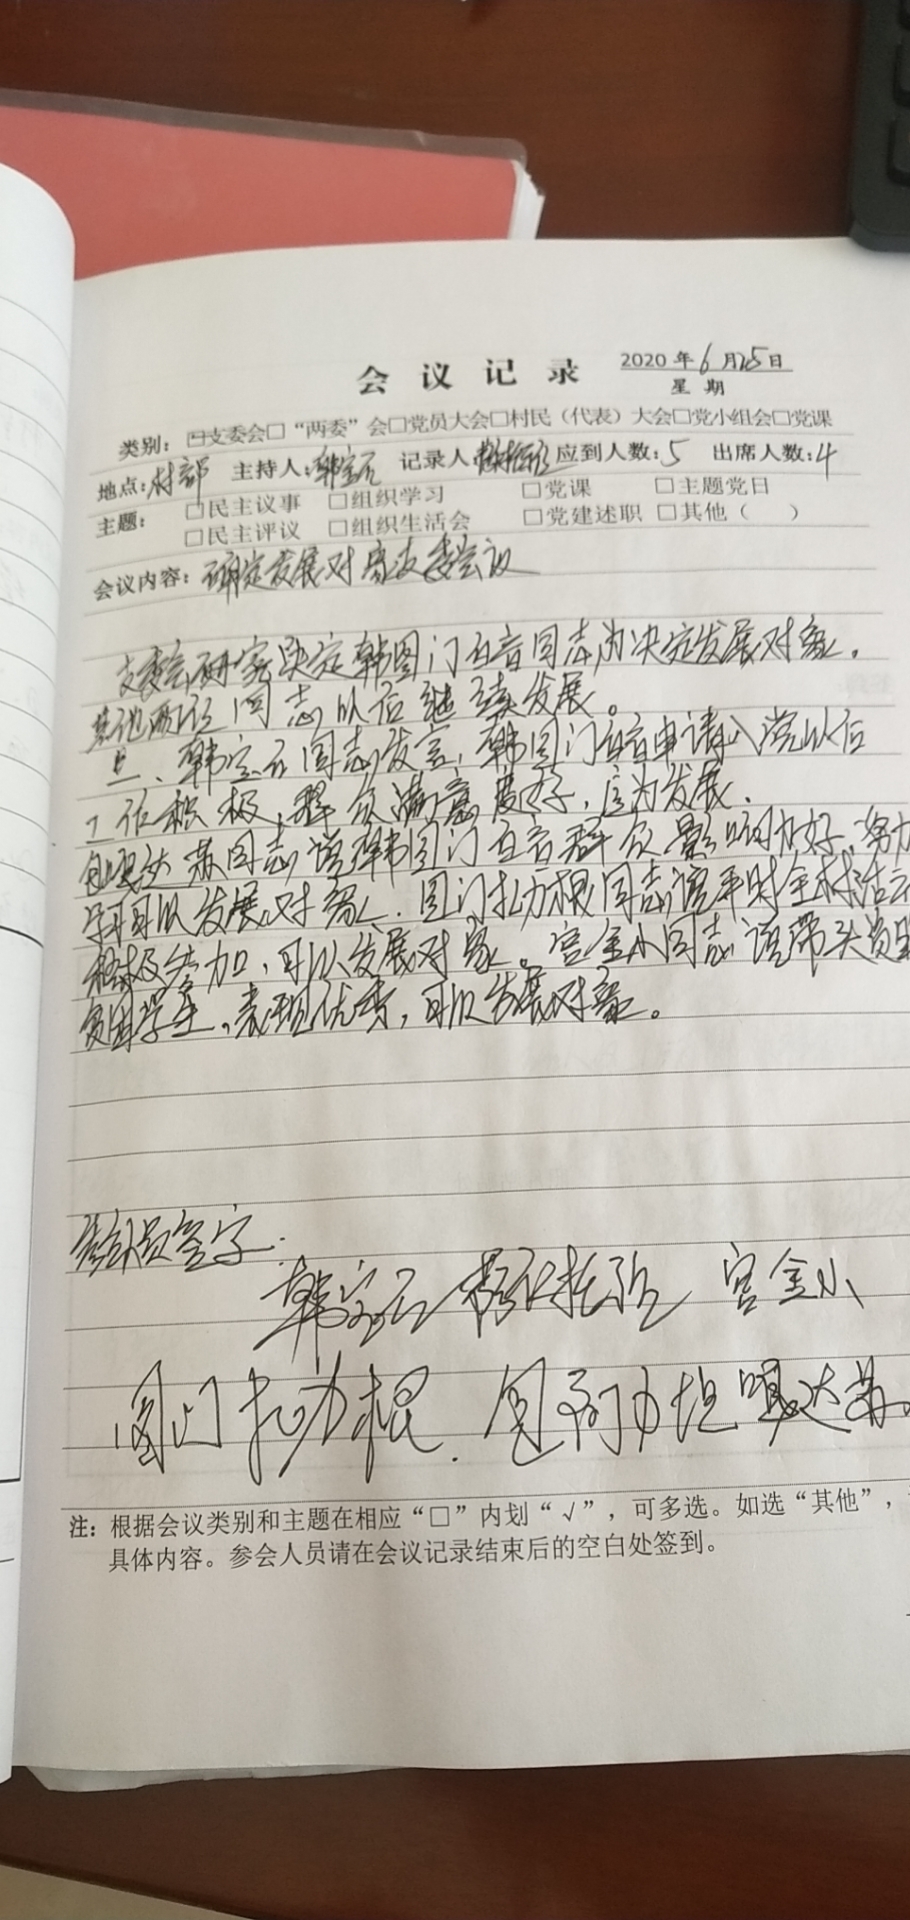 会议记录 2020年6月25日
星期
类别：☑支委会□“两委”会□党员大会□村民（代表）大会□党小组会□党课
地点：村部 主持人：韩宝石 记录人： 应到人数：5 出席人数：4
主题： □民主议事 □组织学习 □党课 □主题党日
□民主评议 □组织生活会 □党建述职 □其他（ ）
会议内容：确定发展对象支委会议
支委会研究决定韩图门 同志为决定发展对象。
其他两位同志以后继续发展。
一、韩宝石同志发言，韩图门 申请入党以后
工作积极，群众满意度好，应为发展．
达苏同志说韩图门 群众影响力好，努力
学习可以发展对象．图门扎力根同志说平时全村活动
积极参加，可以发展对象。宫金小同志说带头资助
贫困学生，表现优秀，可以发展对象。
参会人员签字：
韩宝石 宫金小
图门扎力根． 达苏
注：根据会议类别和主题在相应“□”内划“√”，可多选。如选“其他”，
具体内容。参会人员请在会议记录结束后的空白处签到。